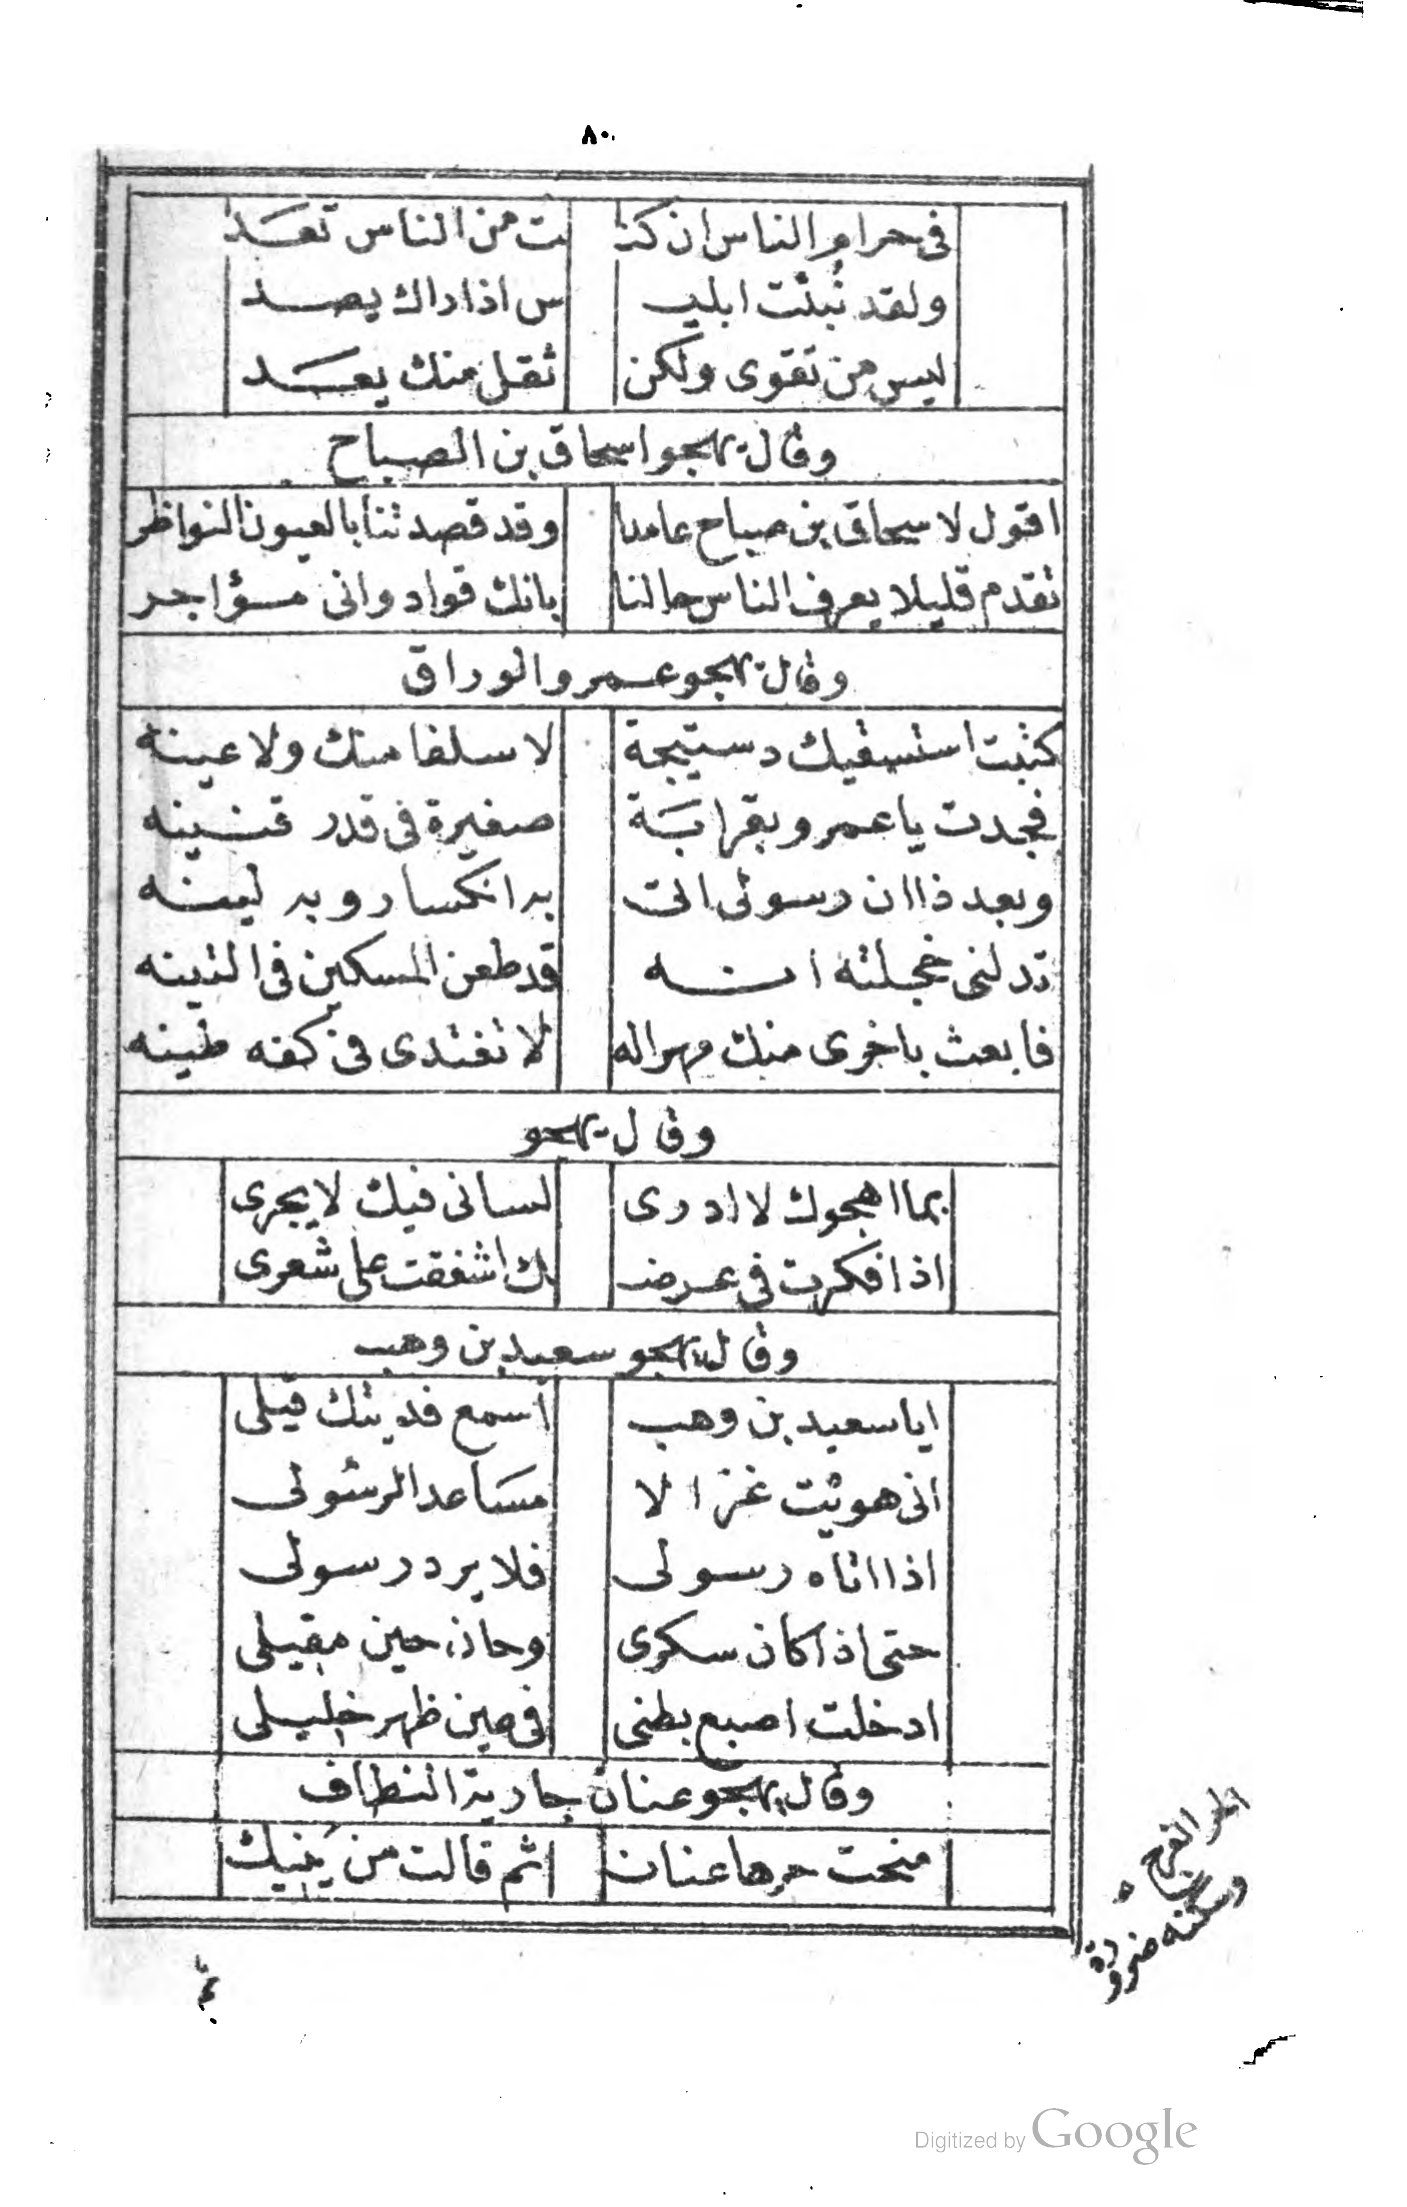 ٨٠
في حرام الناس ان كنـ ـت من الناس تعد
ولقد نُبئت ابليـ ـس اذا راك يصد
ليس من تقوى ولكن ثقل منك يعد
وقال يهجو اسحاق بن الصباح
اقول لاسحاق بن صباح عامدا وقد قصدتنا بالعيون النواظر
تقدم قليلا يعرف الناس حالنا بانك قواد وانى مسؤاجر
وقال يهجو عمرو الوراق
كتبت استسقيك دستيجة لا سلفا منك ولا عينه
فجدت يا عمرو بقرابة صغيرة في قدر قنينه
وبعد ذا ان رسولى اتى به انكسار وبه لينه
تدلنى خجلته انه قد طعن المسكين في التينه
فابعث باخرى منك مهراله لا تغتدى في كفه طينه
وقال يهجو
بما اهجوك لا ادرى لسانى فيك لا يجرى
اذا فكرت في عرضـ ـك اشفقت على شعرى
وقال يهجو سعيد بن وهب
ايا سعيد بن وهب اسمع فديتك قيلى
انى هويت غزالا مساعدا لرسولى
اذا اتاه رسولى فلا يرد رسولى
حتى اذا كان سكرى وحان حين مقيلى
ادخلت اصبع بطنى في عين ظهر خليلى
وقال يهجو عنان جارية النطاف
منحت حرها عنان ثم قالت من ينيك
الحر الفرج
وسكنه ضرورة
Digitized by Google